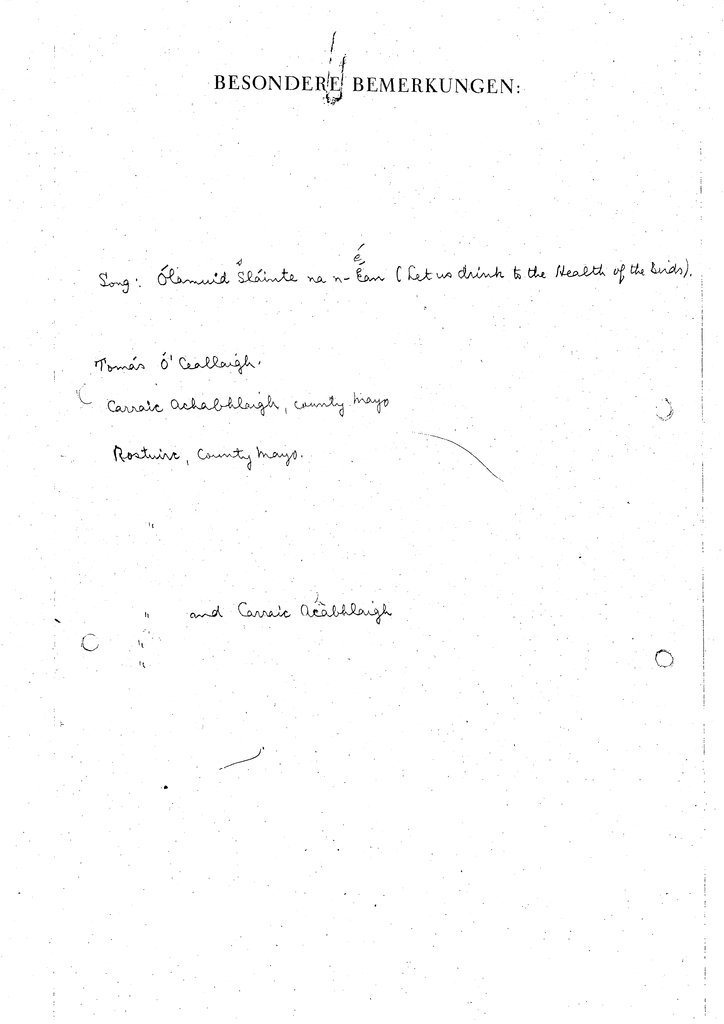 BESONDERE BEMERKUNGEN:
Song: Ólamuid Sláinte na n-Éan (Let us drink to the Health of the Birds).
Tomás Ó'Ceallaigh.
Carraic Achabhlaigh, County Mayo
Rosturc, County Mayo.
"
" and Carraic Acabhlaigh
"
"